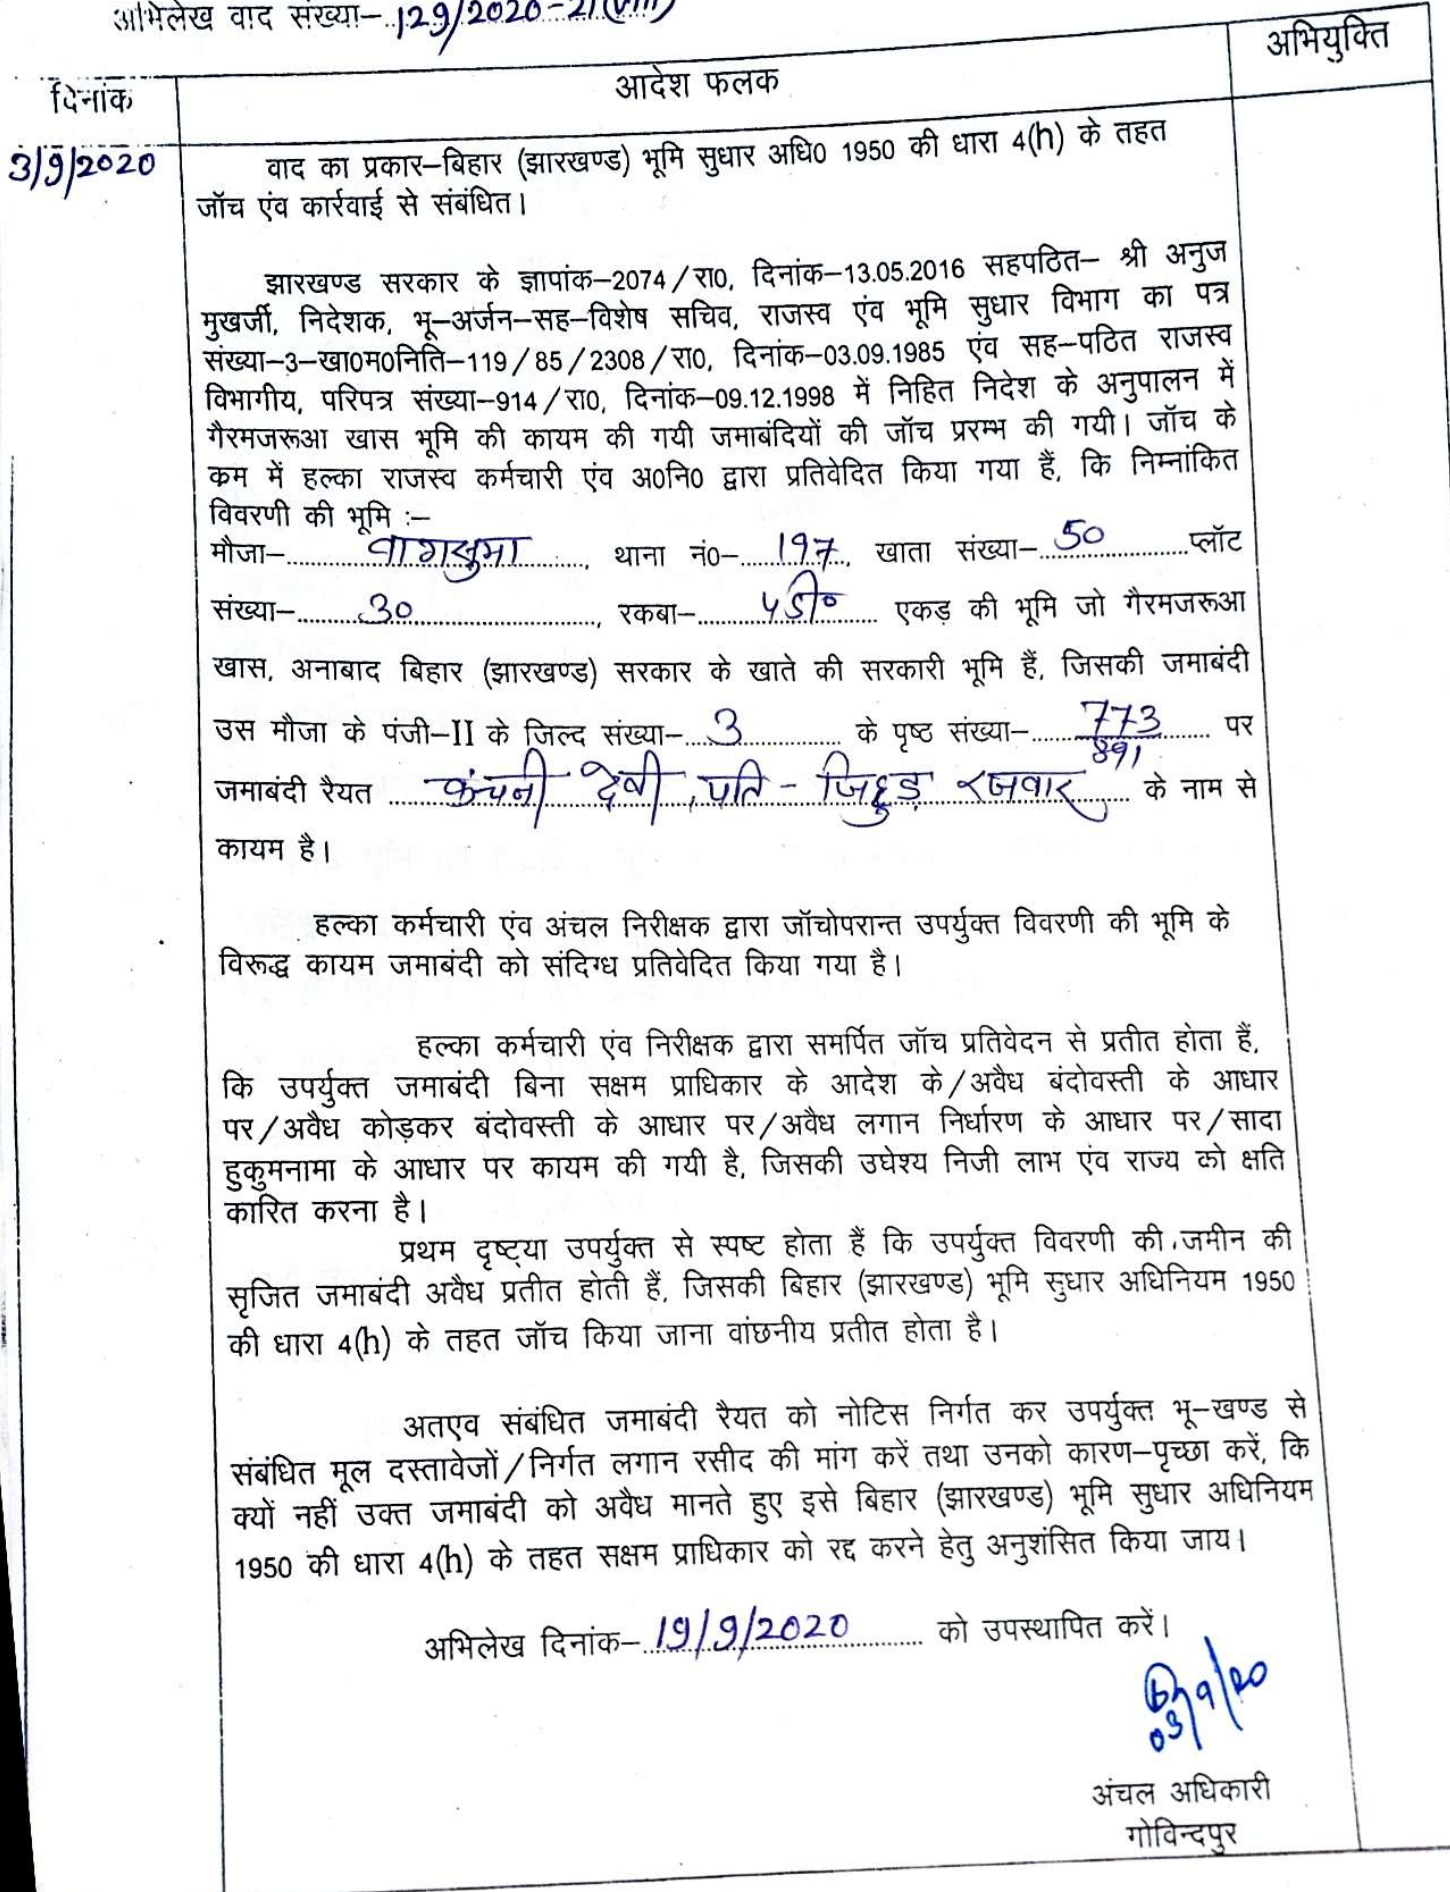 अभिलेख वाद संख्या– 129/2020-21(VIII)
दिनांक
आदेश फलक
अभियुक्ति
3/9/2020
वाद का प्रकार–बिहार (झारखण्ड) भूमि सुधार अधि0 1950 की धारा 4(h) के तहत
जॉच एंव कार्रवाई से संबंधित।
झारखण्ड सरकार के ज्ञापांक–2074/रा0, दिनांक–13.05.2016 सहपठित– श्री अनुज
मुखर्जी, निदेशक, भू–अर्जन–सह–विशेष सचिव, राजस्व एंव भूमि सुधार विभाग का पत्र
संख्या–3–खा0म0निति–119/85/2308/रा0, दिनांक–03.09.1985 एंव सह–पठित राजस्व
विभागीय, परिपत्र संख्या–914/रा0, दिनांक–09.12.1998 में निहित निदेश के अनुपालन में
गैरमजरूआ खास भूमि की कायम की गयी जमाबंदियों की जॉच प्ररम्भ की गयी। जॉच के
कम में हल्का राजस्व कर्मचारी एंव अ0नि0 द्वारा प्रतिवेदित किया गया हैं, कि निम्नांकित
विवरणी की भूमि :–
मौजा– वागसुमा, थाना नं0– 197, खाता संख्या– 50 प्लॉट
संख्या– 30, रकबा– 5 डी0 एकड़ की भूमि जो गैरमजरूआ
खास, अनाबाद बिहार (झारखण्ड) सरकार के खाते की सरकारी भूमि हैं, जिसकी जमाबंदी
उस मौजा के पंजी–II के जिल्द संख्या– 3 के पृष्ठ संख्या– 773/891 पर
जमाबंदी रैयत कंचनी देवी, पति - रजवार के नाम से
कायम है।
हल्का कर्मचारी एंव अंचल निरीक्षक द्वारा जॉचोपरान्त उपर्युक्त विवरणी की भूमि के
विरूद्ध कायम जमाबंदी को संदिग्ध प्रतिवेदित किया गया है।
हल्का कर्मचारी एंव निरीक्षक द्वारा समर्पित जॉच प्रतिवेदन से प्रतीत होता हैं,
कि उपर्युक्त जमाबंदी बिना सक्षम प्राधिकार के आदेश के/अवैध बंदोवस्ती के आधार
पर/अवैध कोड़कर बंदोवस्ती के आधार पर/अवैध लगान निर्धारण के आधार पर/सादा
हुकुमनामा के आधार पर कायम की गयी है, जिसकी उघेश्य निजी लाभ एंव राज्य को क्षति
कारित करना है।
प्रथम दृष्ट्या उपर्युक्त से स्पष्ट होता हैं कि उपर्युक्त विवरणी की जमीन की
सृजित जमाबंदी अवैध प्रतीत होती हैं, जिसकी बिहार (झारखण्ड) भूमि सुधार अधिनियम 1950
की धारा 4(h) के तहत जॉच किया जाना वांछनीय प्रतीत होता है।
अतएव संबंधित जमाबंदी रैयत को नोटिस निर्गत कर उपर्युक्त भू–खण्ड से
संबंधित मूल दस्तावेजों/निर्गत लगान रसीद की मांग करें तथा उनको कारण–पृच्छा करें, कि
क्यों नहीं उक्त जमाबंदी को अवैध मानते हुए इसे बिहार (झारखण्ड) भूमि सुधार अधिनियम
1950 की धारा 4(h) के तहत सक्षम प्राधिकार को रद्द करने हेतु अनुशंसित किया जाय।
अभिलेख दिनांक– 19/9/2020 को उपस्थापित करें।
03/9/20
अंचल अधिकारी
गोविन्दपुर